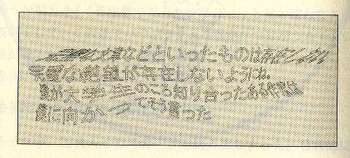 完璧な文章などといったものは存在しない
完璧な絶望が存在しないようにね。
僕が大学生のころ知り合ったある作家は
僕に向かってそう言った